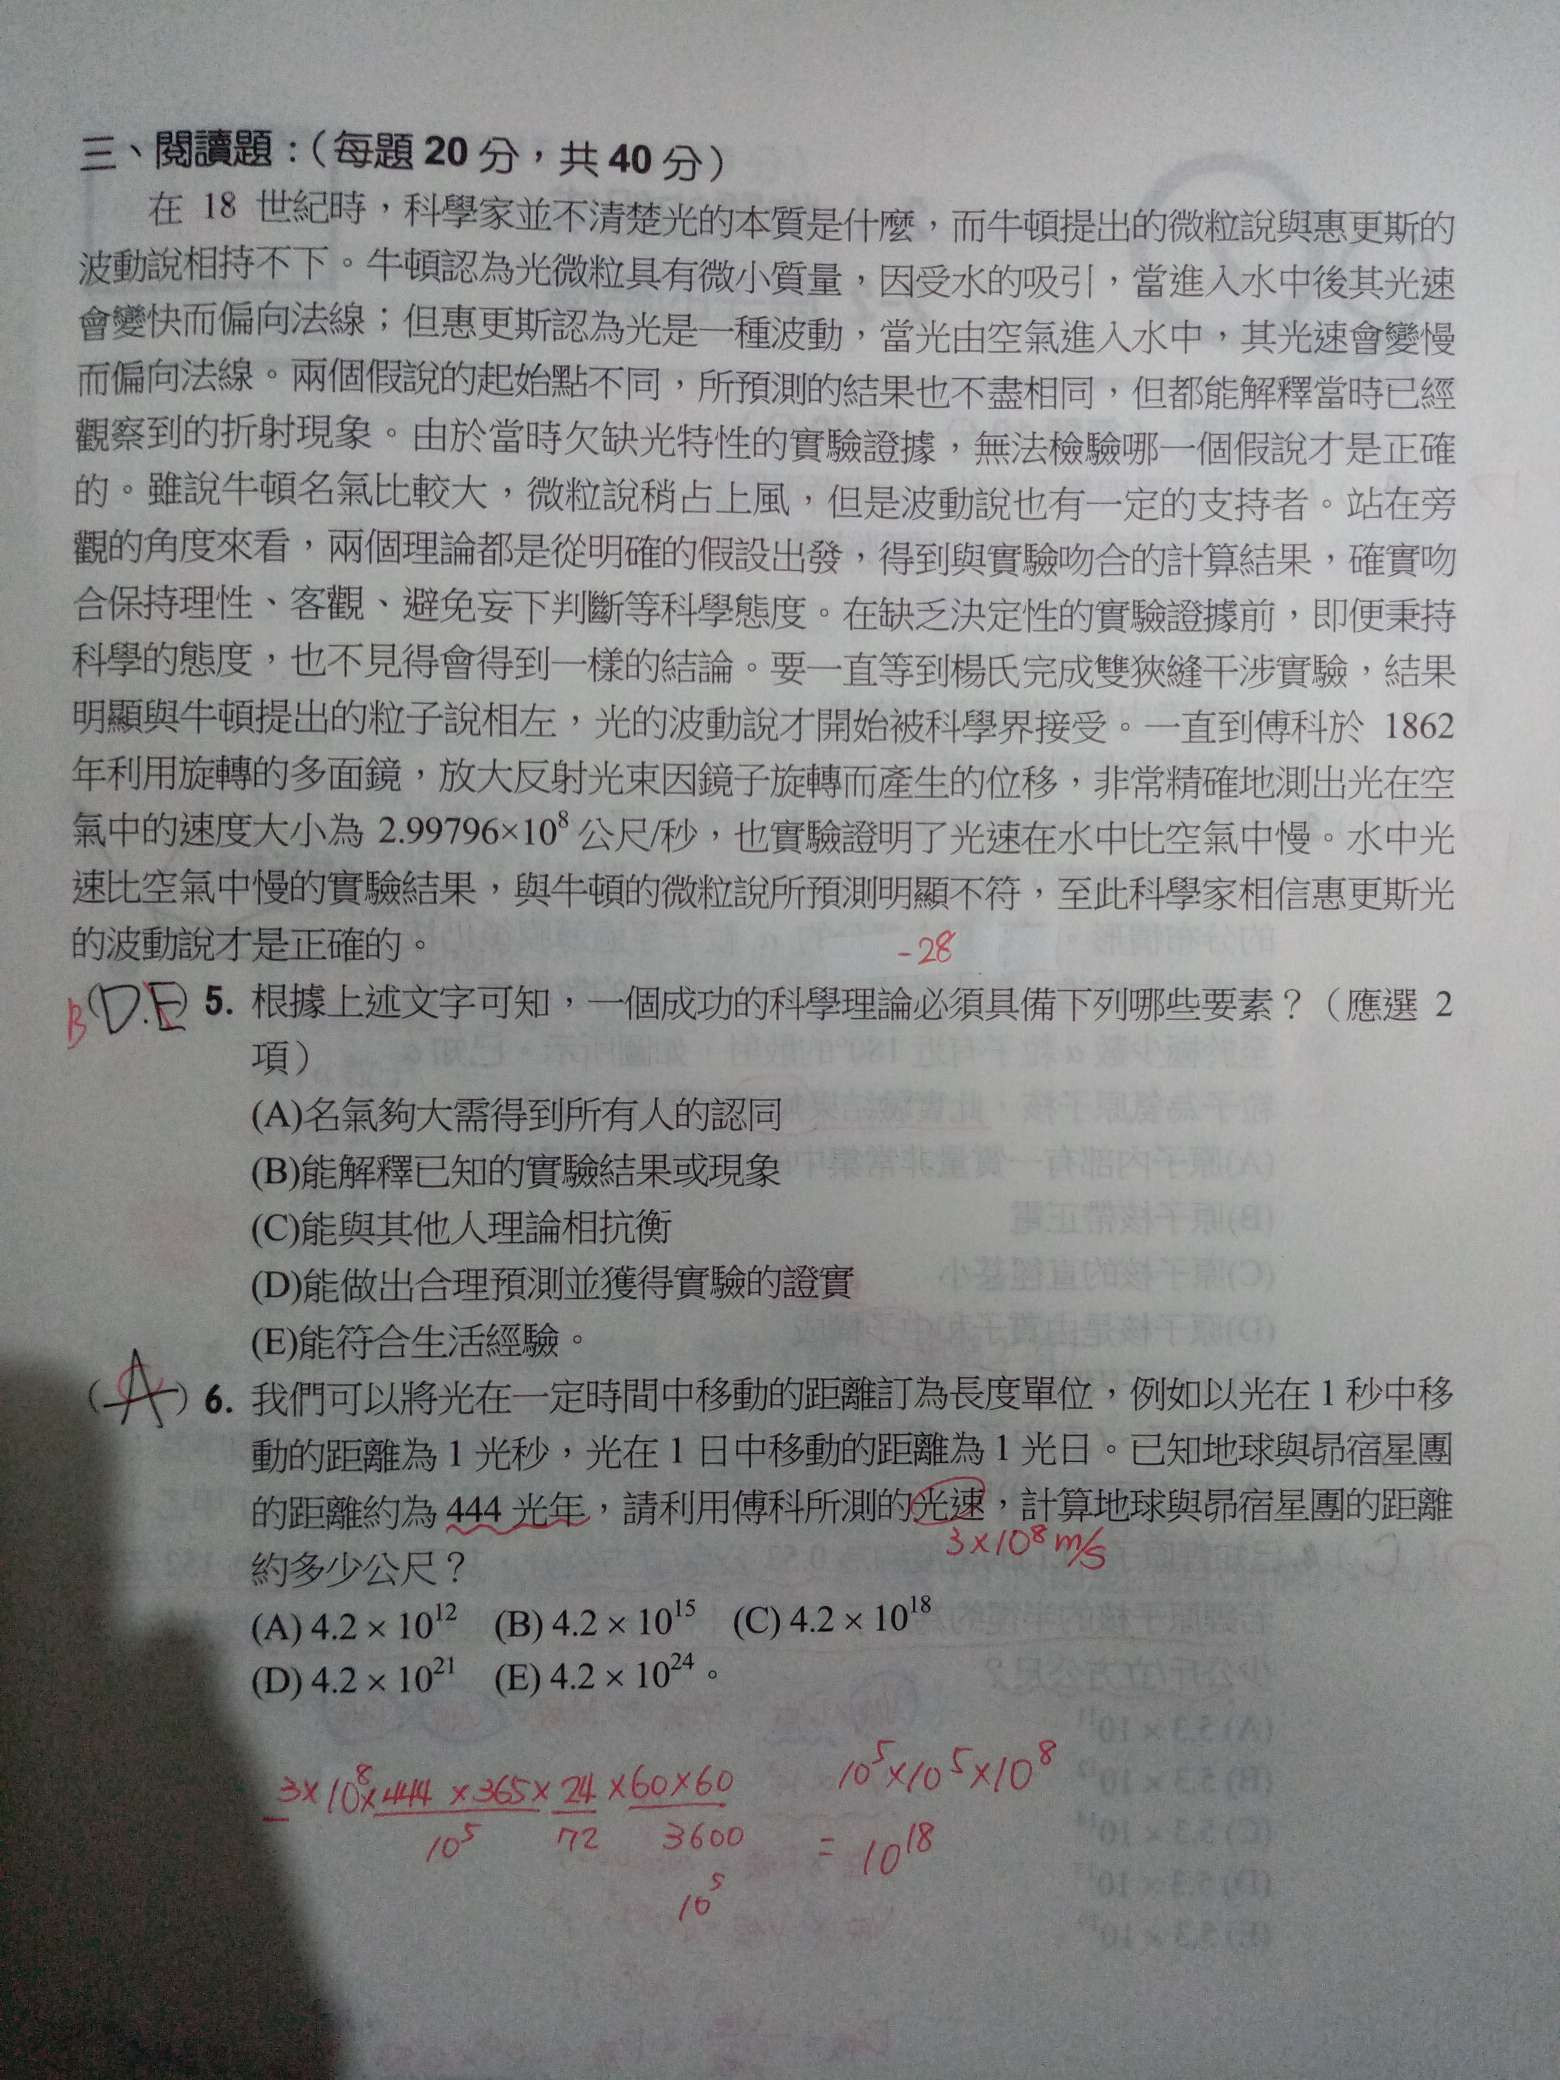 三、閱讀題:(每題20分,共40分)
在 18 世紀時,科學家並不清楚光的本質是什麼,而牛頓提出的微粒說與惠更斯的
波動說相持不下。牛頓認為光微粒具有微小質量,因受水的吸引,當進入水中後其光速
會變快而偏向法線;但惠更斯認為光是一種波動,當光由空氣進入水中,其光速會變慢
而偏向法線。兩個假說的起始點不同,所預測的結果也不盡相同,但都能解釋當時已經
觀察到的折射現象。由於當時欠缺光特性的實驗證據,無法檢驗哪一個假說才是正確
的。雖說牛頓名氣比較大,微粒說稍占上風,但是波動說也有一定的支持者。站在旁
觀的角度來看,兩個理論都是從明確的假設出發,得到與實驗吻合的計算結果,確實吻
合保持理性、客觀、避免妄下判斷等科學態度。在缺乏決定性的實驗證據前,即便秉持
科學的態度,也不見得會得到一樣的結論。要一直等到楊氏完成雙狹縫干涉實驗,結果
明顯與牛頓提出的粒子說相左,光的波動說才開始被科學界接受。一直到傅科於 1862
年利用旋轉的多面鏡,放大反射光束因鏡子旋轉而產生的位移,非常精確地測出光在空
氣中的速度大小為 2.99796×10⁸ 公尺/秒,也實驗證明了光速在水中比空氣中慢。水中光
速比空氣中慢的實驗結果,與牛頓的微粒說所預測明顯不符,至此科學家相信惠更斯光
的波動說才是正確的。
-28
B(D.E) 5. 根據上述文字可知,一個成功的科學理論必須具備下列哪些要素?(應選 2
項)
(A)名氣夠大需得到所有人的認同
(B)能解釋已知的實驗結果或現象
(C)能與其他人理論相抗衡
(D)能做出合理預測並獲得實驗的證實
(E)能符合生活經驗。
(A) 6. 我們可以將光在一定時間中移動的距離訂為長度單位,例如以光在 1 秒中移
動的距離為 1 光秒,光在 1 日中移動的距離為 1 光日。已知地球與昴宿星團
的距離約為 444 光年,請利用傅科所測的光速,計算地球與昴宿星團的距離
3×10⁸ m/s
約多少公尺?
(A) 4.2 × 10¹² (B) 4.2 × 10¹⁵ (C) 4.2 × 10¹⁸
(D) 4.2 × 10²¹ (E) 4.2 × 10²⁴。
3×10⁸×444×365×24×60×60
10⁵ 72 3600
10⁵
10⁵×10⁵×10⁸
= 10¹⁸